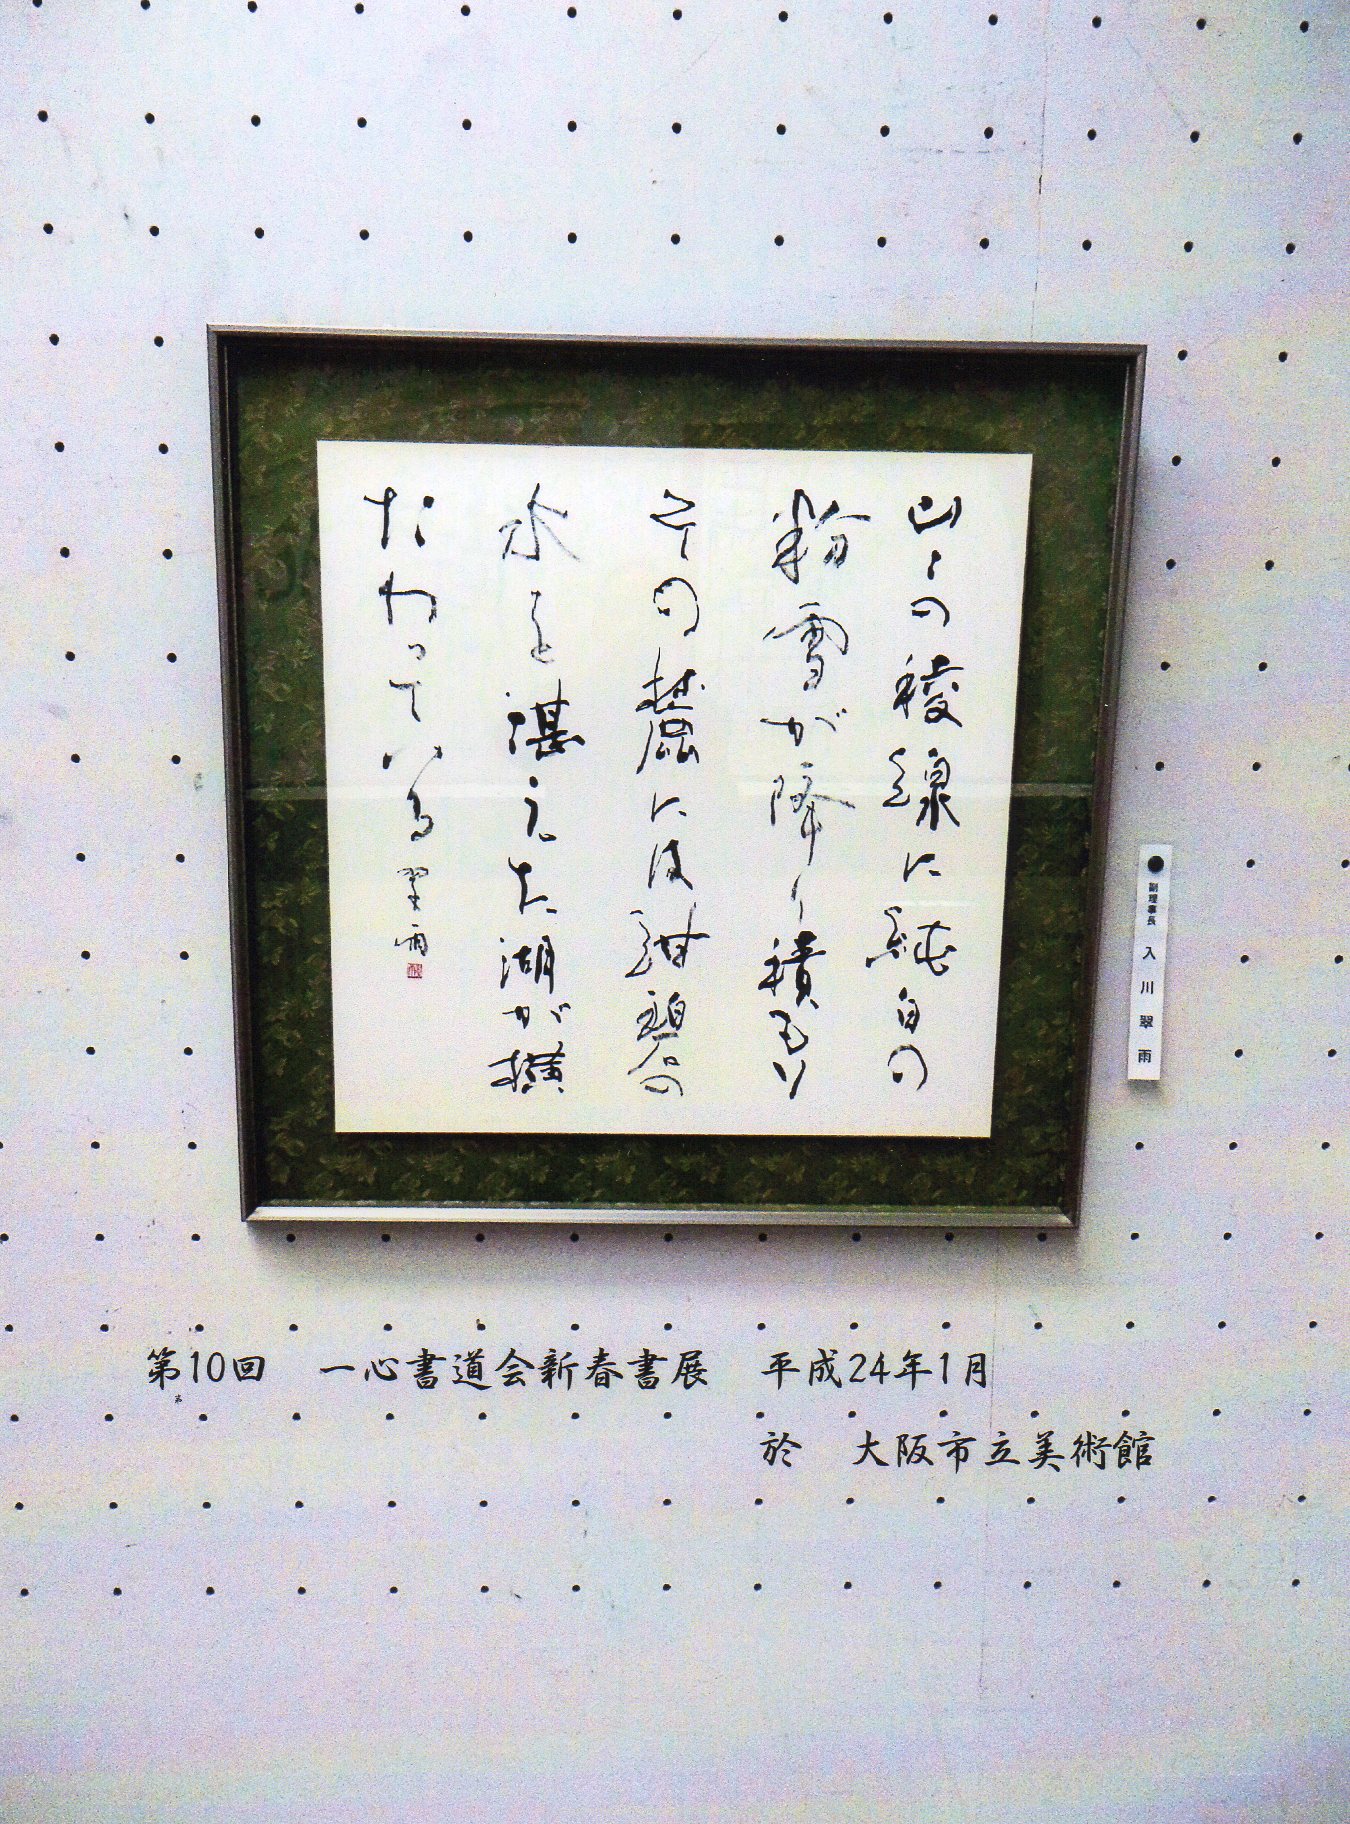 山々の稜線に純白の
粉雪が降り積もり
その麓には紺碧の
水を湛えた湖が横
たわっている 翠雨
副理事長 入川翠雨
第10回 一心書道会新春書展 平成24年1月
於 大阪市立美術館